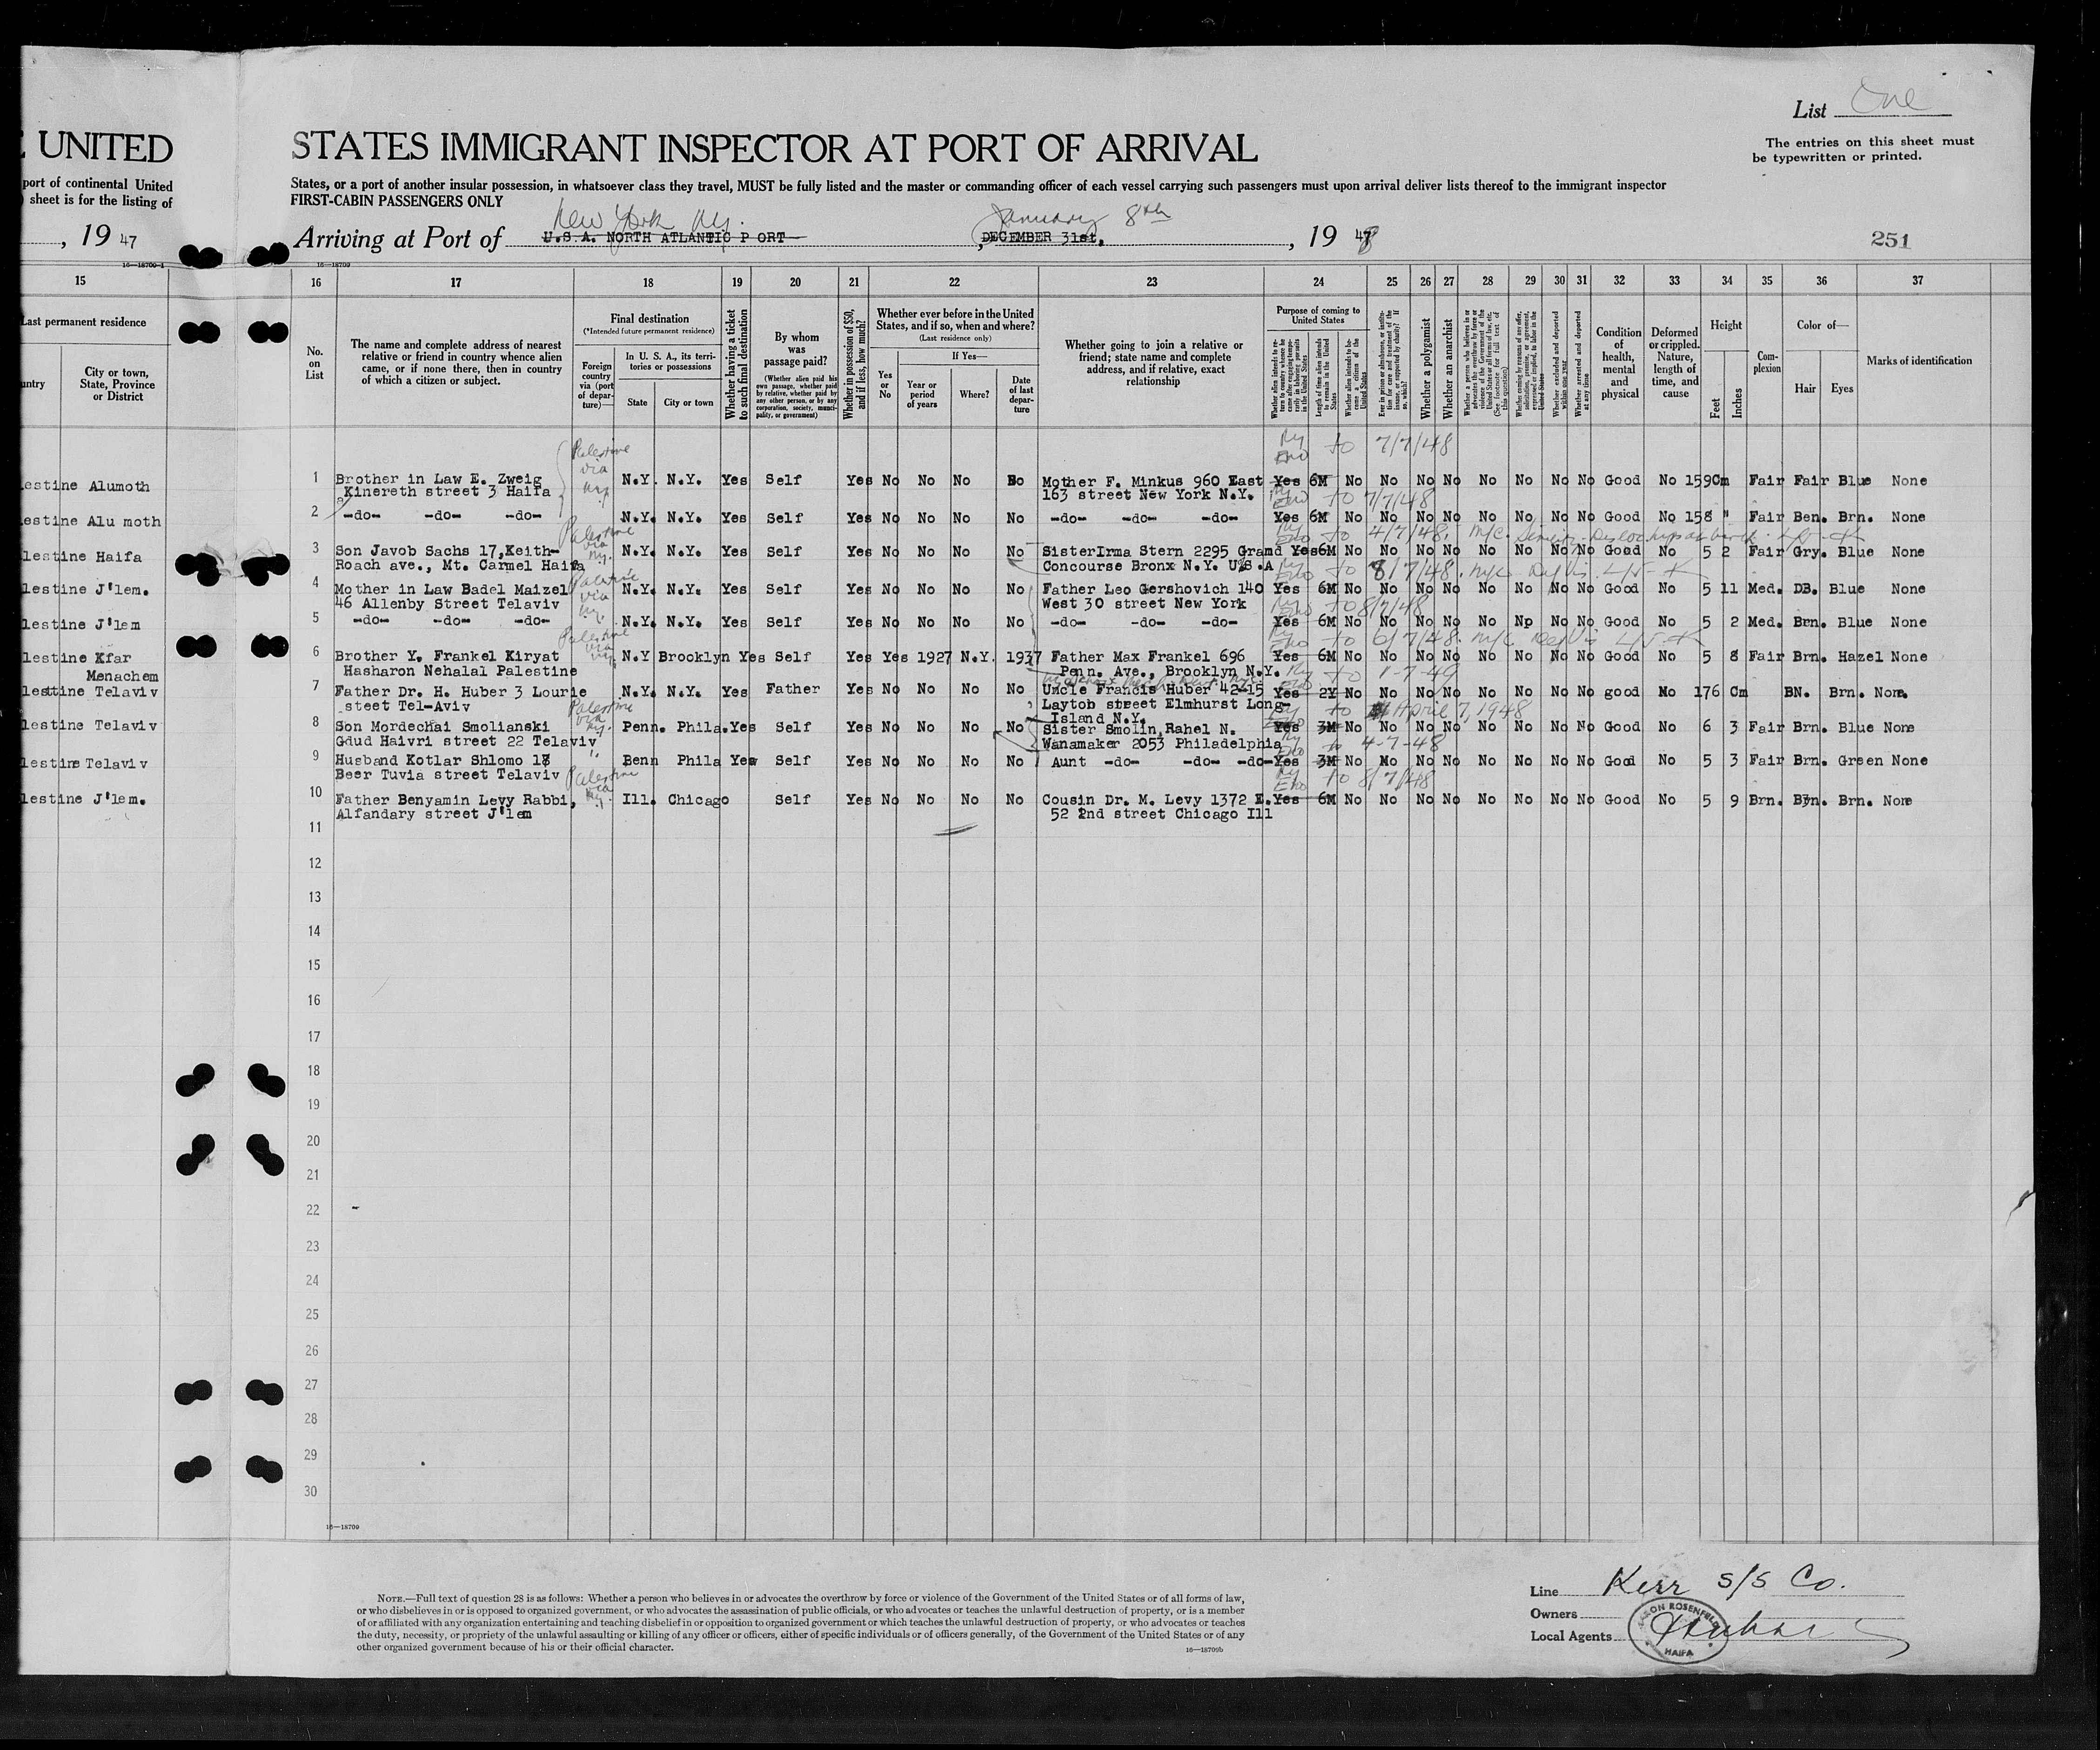 List One
E UNITED
STATES IMMIGRANT INSPECTOR AT PORT OF ARRIVAL
The entries on this sheet must
be typewritten or printed.
port of continental United
sheet is for the listing of
States, or a port of another insular possession, in whatsoever class they travel, MUST be fully listed and the master or commanding officer of each vessel carrying such passengers must upon arrival deliver lists thereof to the immigrant inspector
FIRST-CABIN PASSENGERS ONLY
New York Ny. January 8th
, 19 47
Arriving at Port of U.S.A. NORTH ATLANTIC P ORT , DECEMBER 31st, , 19 48
251
16—18700-1
16—18709
15 16 17 18 19 20 21 22 23 24 25 26 27 28 29 30 31 32 33 34 35 36 37
Last permanent residence
untry
City or town,
State, Province
or District
No.
on
List
The name and complete address of nearest
relative or friend in country whence alien
came, or if none there, then in country
of which a citizen or subject.
Final destination
(*Intended future permanent residence)
Foreign
country
via (port
of depar-
ture)—
In U. S. A., its terri-
tories or possessions
State
City or town
Whether having a ticket
to such final destination
By whom
was
passage paid?
(Whether alien paid his
own passage, whether paid
by relative, whether paid by
any other person, or by any
corporation, society, munici-
pality, or government)
Whether in possession of $50,
and if less, how much?
Whether ever before in the United
States, and if so, when and where?
(Last residence only)
Yes
or
No
If Yes—
Year or
period
of years
Where?
Date
of last
depar-
ture
Whether going to join a relative or
friend; state name and complete
address, and if relative, exact
relationship
Purpose of coming to
United States
Length of time alien intends
to remain in the United
States
Whether alien intends to be-
come a citizen of the
United States
Whether a polygamist
Whether an anarchist
Whether arrested and deported
at any time
Condition
of
health,
mental
and
physical
Deformed
or crippled.
Nature,
length of
time, and
cause
Height
Feet
Inches
Com-
plexion
Color of—
Hair
Eyes
Marks of identification
Palestine via Ny to 7/7/48
estine Alumoth 1 Brother in Law E. Zweig N.Y. N.Y. Yes Self Yes No No No No Mother F. Minkus 960 East Yes 6M No No No No No No No No Good No 159Cm Fair Fair Blue None
Kinereth street 3 Haifa 163 street New York N.Y.
to 7/7/48
estine Alu moth 2 -do- -do- -do- N.Y. N.Y. Yes Self Yes No No No No -do- -do- -do- Yes 6M No No No No No No No No Good No 158 " Fair Ben. Brn. None
Palestine via Ny. to 4/7/48.
lestine Haifa 3 Son Javob Sachs 17,Keith- N.Y. N.Y. Yes Self Yes No No No No SisterIrma Stern 2295 Grand Yes 6M No No No No No No No No Good No 5 2 Fair Gry. Blue None
Roach ave., Mt. Carmel Haifa Concourse Bronx N.Y. U.S.A
to 8/7/48.
lestine J'lem. 4 Mother in Law Badel Maizel N.Y. N.Y. Yes Self Yes No No No No Father Leo Gershovich 140 Yes 6M No No No No No No No No Good No 5 11 Med. DB. Blue None
46 Allenby Street Telaviv West 30 street New York
to 8/7/48
lestine J'lem 5 -do- -do- -do- N.Y. N.Y. Yes Self Yes No No No No -do- -do- -do- Yes 6M No No No No No Np No No Good No 5 2 Med. Brn. Blue None
Palestine via Ny to 6/7/48.
lestine Kfar 6 Brother Y. Frankel Kiryat N.Y Brooklyn Yes Self Yes Yes 1927 N.Y. 1937 Father Max Frankel 696 Yes 6M No No No No No No No No Good No 5 8 Fair Brn. Hazel None
Menachem Hasharon Nehalal Palestine Penn. Ave., Brooklyn N.Y.
to 1-7-49
lesttine Telaviv 7 Father Dr. H. Huber 3 Lourie N.Y. N.Y. Yes Father Yes No No No No Uncle Francis Huber 42-15 Yes 2Y No No No No No No No No good No 176 Cm BN. Brn. None.
steet Tel-Aviv Laytob street Elmhurst Long-
Island N.Y.
Palestine via Ny. to April 7, 1948
lestine Telaviv 8 Son Mordechai Smolianski Penn. Phila. Yes Self Yes No No No No Sister Smolin,Rahel N. Yes 3M No No No No No No No No Good No 6 3 Fair Brn. Blue None
Gdud Haivri street 22 Telaviv Wanamaker 2053 Philadelphia
to 4-7-48
lestine Telaviv 9 Husband Kotlar Shlomo 18 Benn Phila Yes Self Yes No No No No Aunt -do- -do- -do- Yes 3M No No No No No No No No Good No 5 3 Fair Brn. Green None
Beer Tuvia street Telaviv
Palestine via Ny. to 8/7/48
lestine J'lem. 10 Father Benyamin Levy Rabbi, Ill. Chicago Self Yes No No No No Cousin Dr. M. Levy 1372 E. Yes 6M No No No No No No No No Good No 5 9 Brn. Brn. Brn. None
Alfandary street J'lem 52 2nd street Chicago Ill
11
12
13
14
15
16
17
18
19
20
21
22
23
24
25
26
27
28
29
30
16—18709
NOTE.—Full text of question 28 is as follows: Whether a person who believes in or advocates the overthrow by force or violence of the Government of the United States or of all forms of law,
or who disbelieves in or is opposed to organized government, or who advocates the assassination of public officials, or who advocates or teaches the unlawful destruction of property, or is a member
of or affiliated with any organization entertaining and teaching disbelief in or opposition to organized government or which teaches the unlawful destruction of property, or who advocates or teaches
the duty, necessity, or propriety of the unlawful assaulting or killing of any officer or officers, either of specific individuals or of officers generally, of the Government of the United States or of any
other organized government because of his or their official character.
16—18709b
Line Kerr S/S Co.
Owners
Local Agents
AARON ROSENFELD
HAIFA